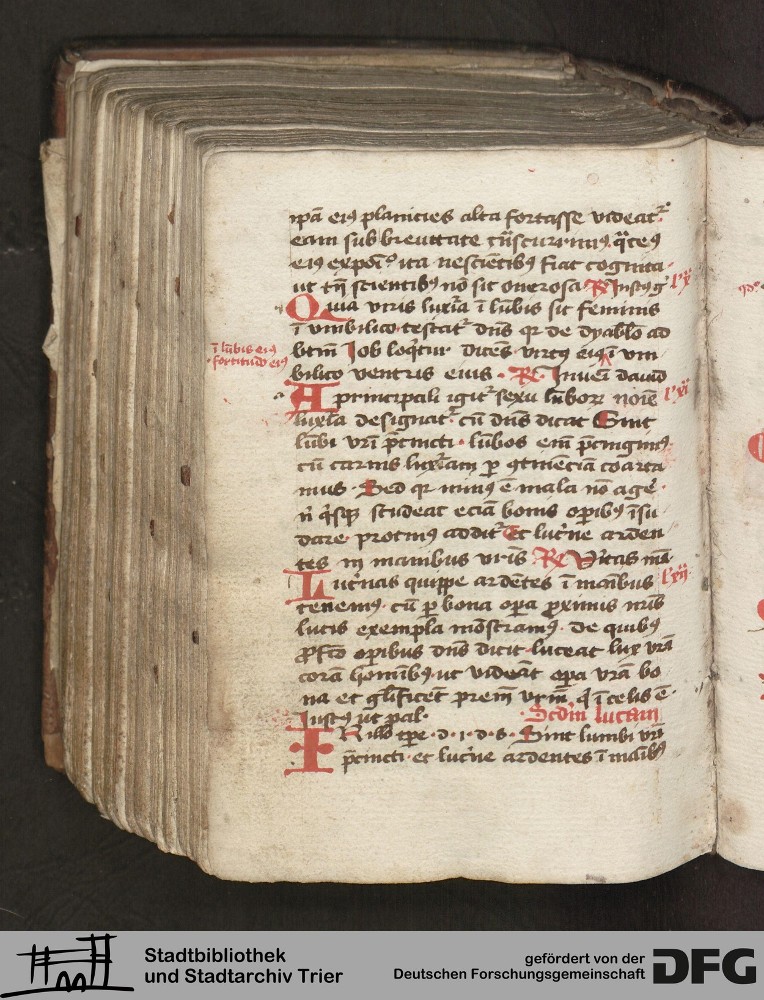 ipā eiꝰ planicies alta fortasse videat᷑
eam sub breuitate t̄nscurrimꝰ. q̄tēꝰ
eiꝰ expoīꝰ ita nesciētibꝰ fiat cognita
ut tn̄ scientibꝰ nō sit onerosa ℟ Justꝰ g̾ lx̄
Quia viris luxīa ī lūbis sit feminis
ī vmbilico testat᷑ dn̄s qr de dyablo ad
btm̄ Job loq̄tur dicēs virtꝰ eiꝰ ī vm
ī lūbis eiꝰ
fortitudo eiꝰ
bilico ventris eius . ℟ . Jnuēi dauid
A principali igit᷑ sexu lūborᷓ noīe lxī
luxīa designat᷑ cū dn̄s dicat Sint
lūbi vr̄i p̄cincti . lūbos em̄ p̄cingimꝰ
cū carnis luxīam ꝑ ꝯtinēciā coarta
mus . Sed qr minꝰ ē mala nō agē .
n̄ q̄sqꝫ studeat eciā bonis opibꝰ īsu
dare . protinꝰ addit᷑ Et luc̾ne arden
tes in manibus vr̄is ℟ Vitas mā
Luc̾nas quippe ardētes ī māibus lxīī
tenemꝰ cū ꝑ bona oꝑa ꝓximis nr̄is
lucis exempla mōstramꝰ . de quibꝰ
ꝓfcō opibus dn̄s dicit . luceat lux vr̄a
corā hominibꝰ ut videāt oꝑa vr̄a bo
na et gl̄ificēt prēm vr̄m q̄ ī celis ē .
Justꝰ ut pal . Scd̄m lucam
IN illo tp̄e . d . i . d . s . Sint lumbi vr̄i
p̄cincti . et luc̾ne ardentes ī māibꝰ
Stadtbibliothek
und Stadtarchiv Trier
gefördert von der
Deutschen Forschungsgemeinschaft
DFG